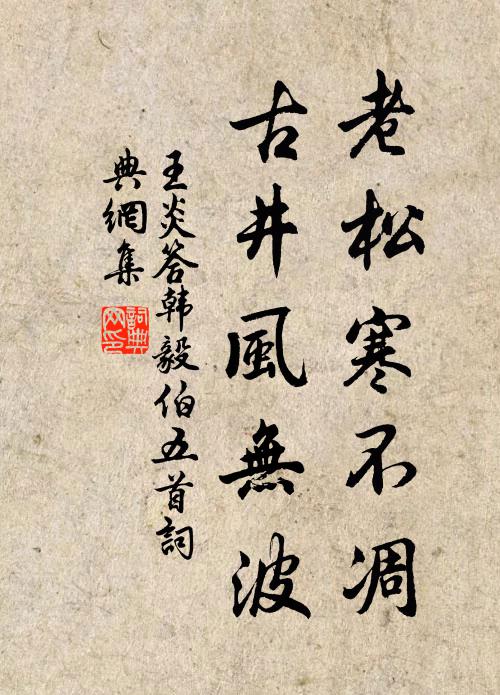 老松寒不凋
古井風無波
王炎答韩毅伯五首詞
典網集
詞典
网印